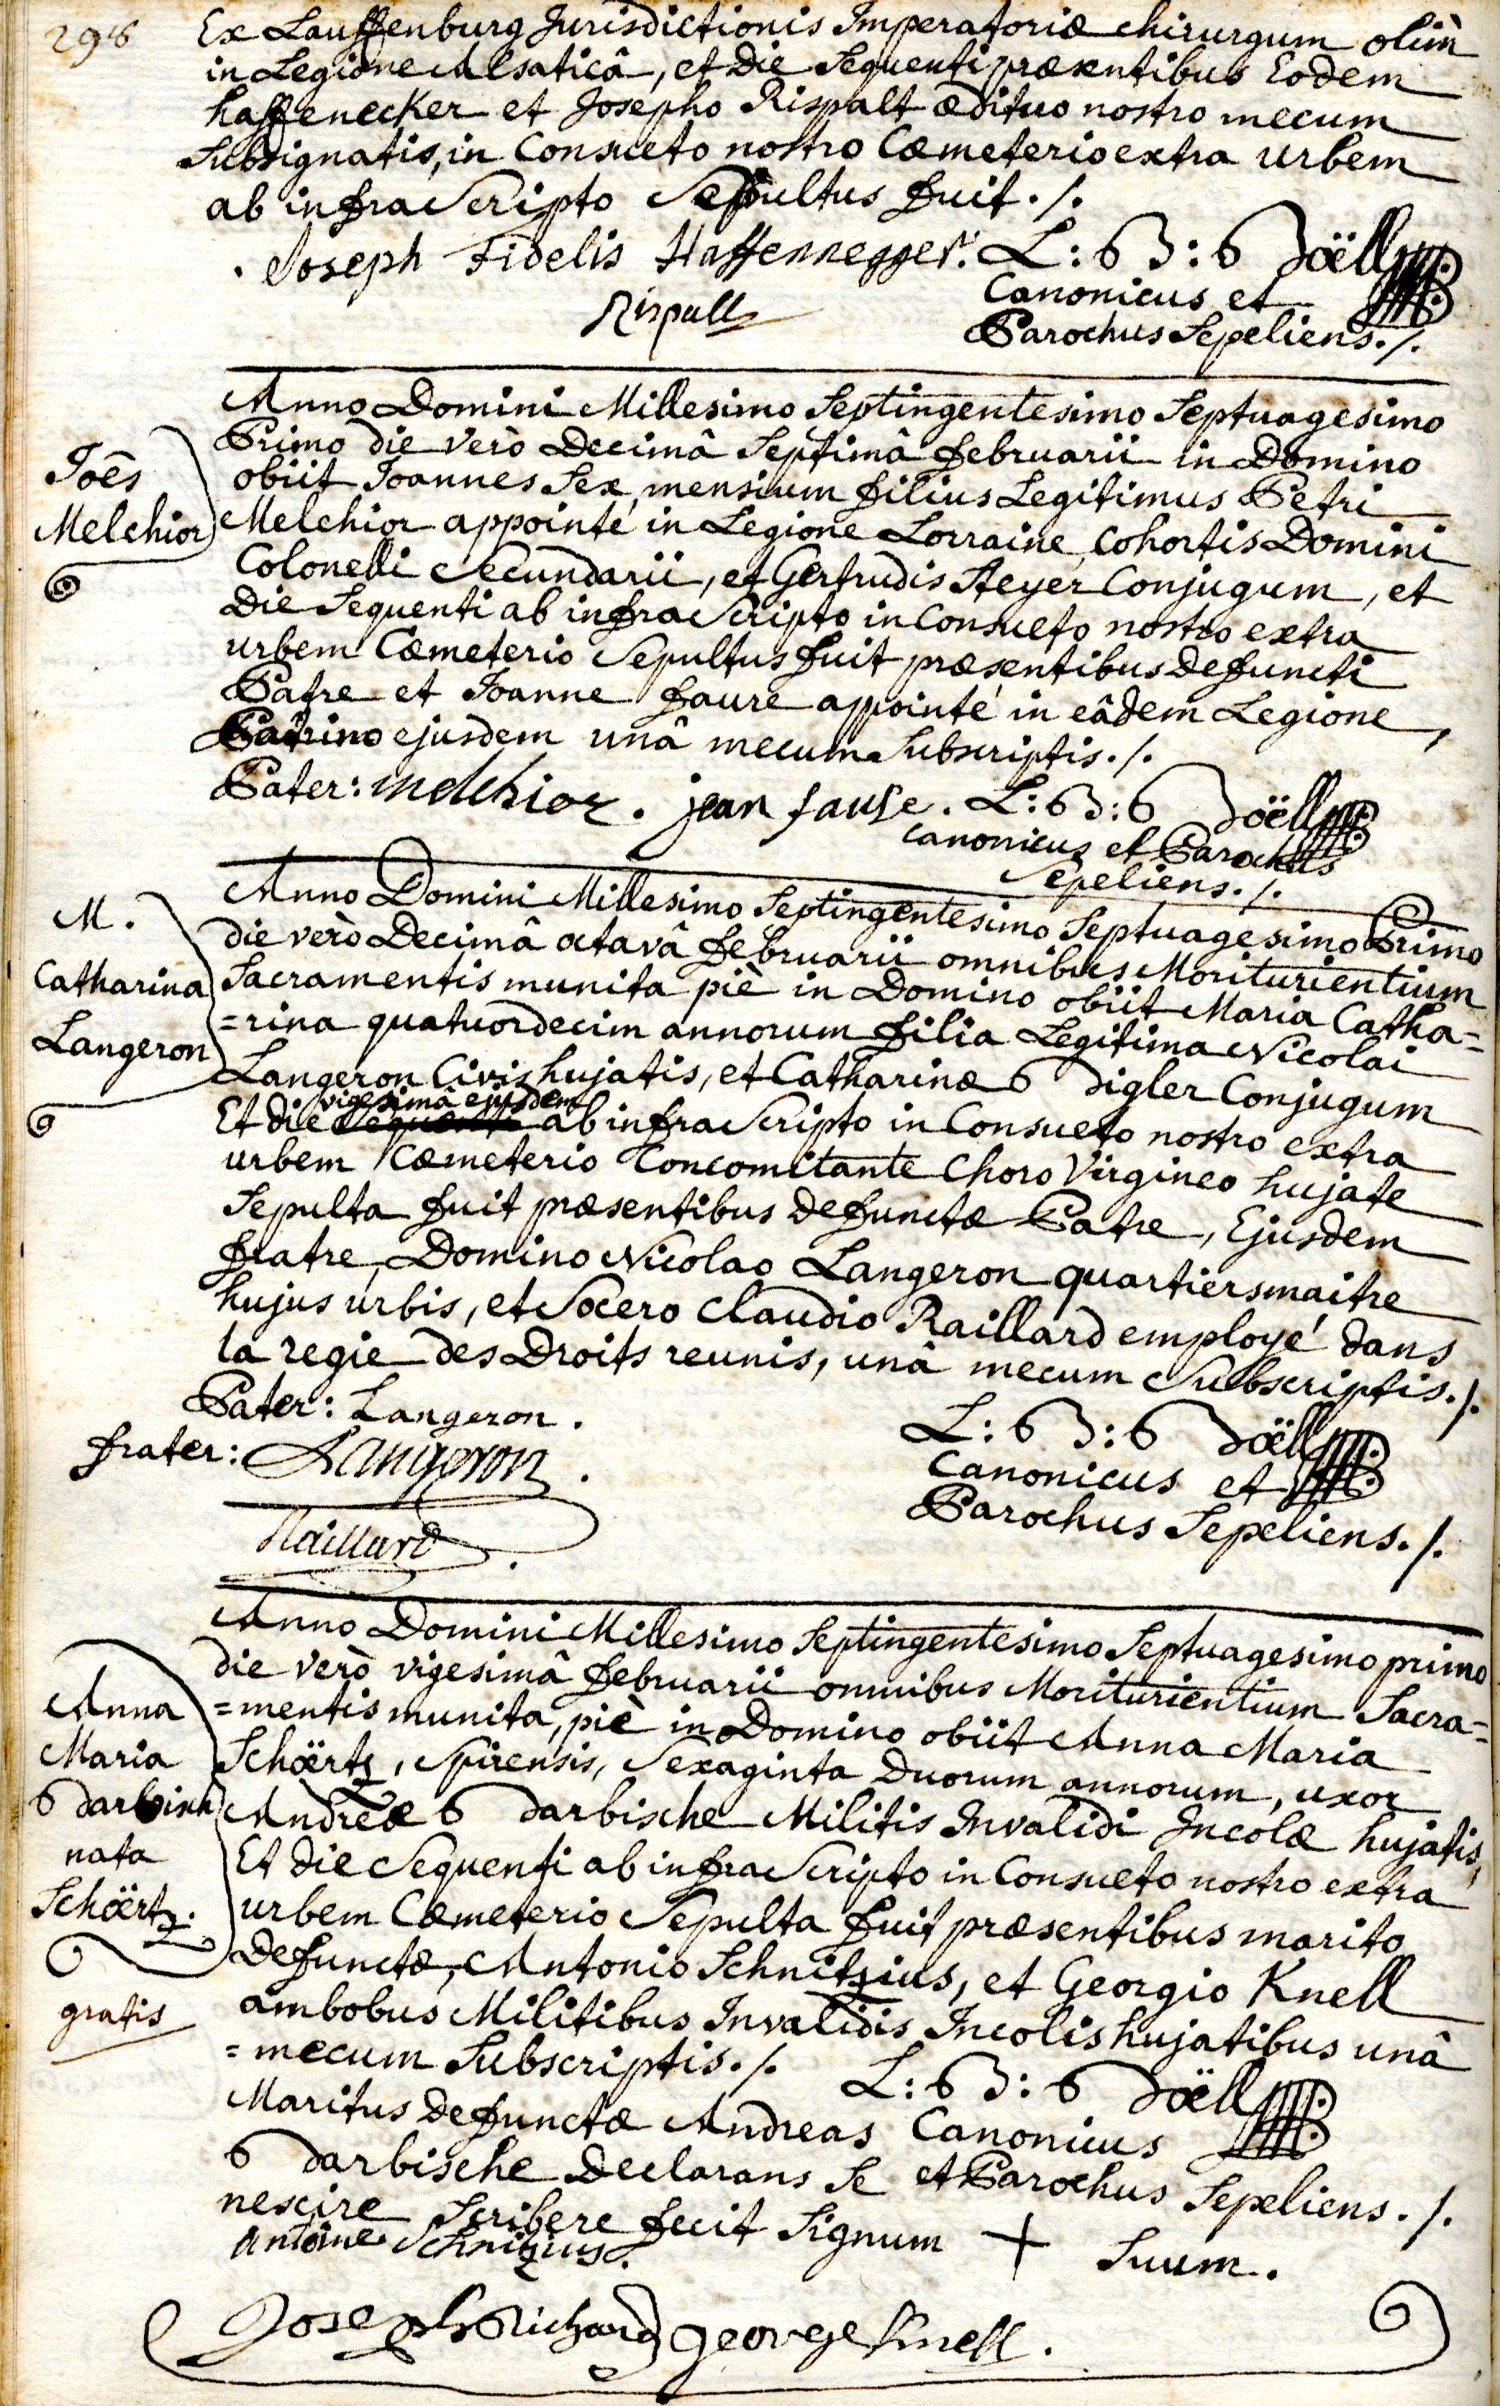 298
Ex Lauffenburg Jurisdictionis Imperatoriæ chirurgum olim
in Legione Alsaticâ, et die sequenti præsentibus Eodem
haffenecker et Josepho Rispalt ædituo nostro mecum
subsignatis, in Consueto nostro Cœmeterio extra urbem
ab infra scripto Sepultus fuit ./.
Joseph Fidelis Haffennegger.
Rispall
L: B: Böell
Canonicus et
Parochus Sepeliens ./.
Joês
Melchior
Anno Domini Millesimo Septingentesimo Septuagesimo
Primo die verò Decimâ Septimâ februarii in Domino
obiit Joannes Sex mensium filius Legitimus Petri
Melchior appointé in Legione Lorraine Cohortis Domini
Colonelli Secundarii, et Gertrudis Steyer Conjugum, et
die Sequenti ab infra Scripto in Consueto nostro extra
urbem Cœmeterio Sepultus fuit præsentibus defuncti
Patre et Joanne faure appointé in eâdem Legione,
Patrino ejusdem unâ mecum Subscriptis ./.
Pater: melchior. jean faure. L: B: Böell
Canonicus et Parochus
Sepeliens ./.
M.
Catharina
Langeron
Anno Domini Millesimo Septingentesimo Septuagesimo Primo
die verò Decimâ octavâ februarii omnibus Moriturientium
Sacramentis munita piè in Domino obiit Maria Catha=
=rina quatuordecim annorum filia Legitima Nicolai
Langeron Civis hujatis, et Catharinæ Bigler Conjugum
vigesimâ ejusdem
Et die sequenti ab infra Scripto in Consueto nostro extra
urbem Cœmeterio Concomitante Choro Virgineo hujate
Sepulta fuit præsentibus defunctæ Patre, Ejusdem
fratre, Domino Nicolao Langeron quartiersmaitre
hujus urbis, et Socero Claudio Raillard employé dans
la regie des Droits reunis, unâ mecum Subscriptis ./.
Pater: Langeron.
frater: Langeron.
Raillard.
L: B: Böell
Canonicus et
Parochus Sepeliens ./.
Anna
Maria
Barbisch
nata
Schöertz.
gratis
Anno Domini Millesimo Septingentesimo Septuagesimo primo
die verò vigesimâ februarii omnibus Moriturientium Sacra=
=mentis munita, piè in Domino obiit Anna Maria
Schöertz, Spirensis, Sexaginta duorum annorum, uxor
Andreæ Barbische Militis Invalidi Incolæ hujatis,
Et die Sequenti ab infra Scripto in Consueto nostro extra
urbem Cœmeterio Sepulta fuit præsentibus marito
defunctæ, Antonio Schnitzius, et Georgio Knell
ambobus Militibus Invalidis Incolis hujatibus unâ
=mecum Subscriptis ./.
L: B: Böell
Canonicus
et Parochus Sepeliens ./.
Maritus defunctæ Andreas
Barbische declarans se
nescire Scribere fecit Signum + Suum.
Antoine Schnizius.
Joseph Richard george Knell.